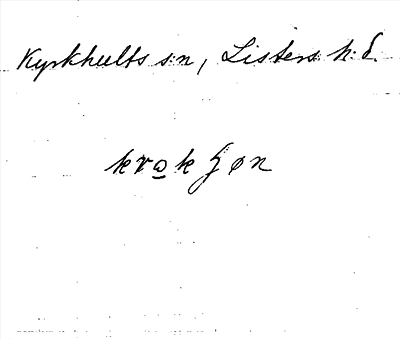 Kyrkhults s:n, Listers h:d.
krωk ʃøn